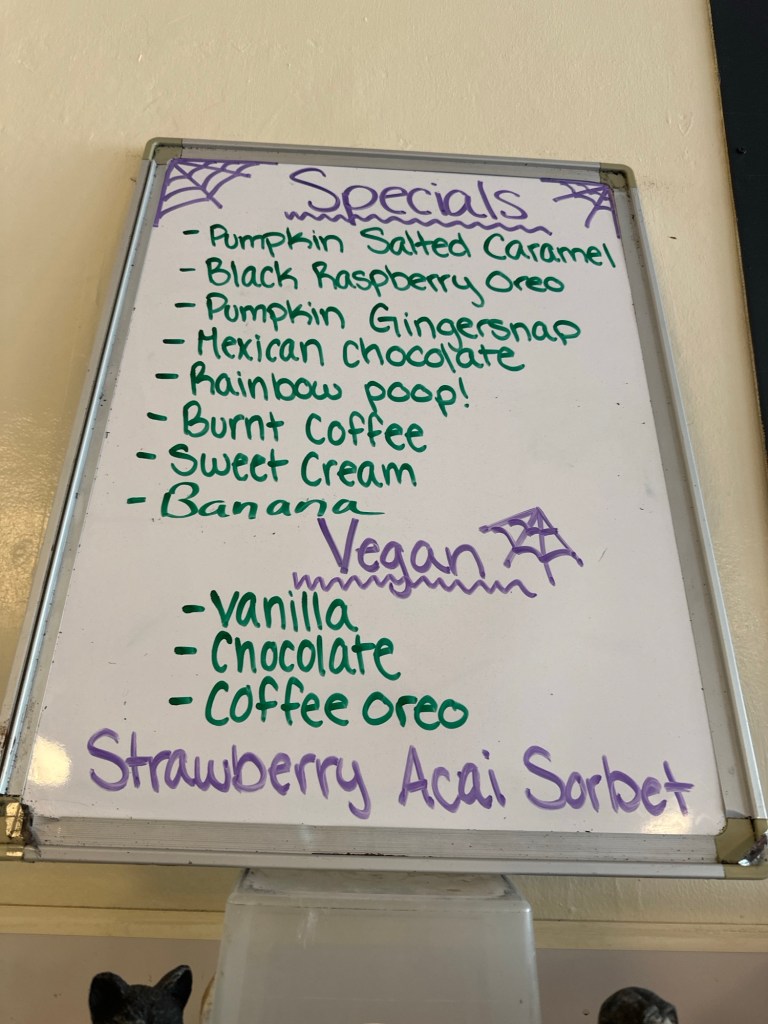 Specials
- Pumpkin Salted Caramel
- Black Raspberry Oreo
- Pumpkin Gingersnap
- Mexican Chocolate
- Rainbow poop!
- Burnt Coffee
- Sweet Cream
- Banana
Vegan
- Vanilla
- Chocolate
- Coffee Oreo
Strawberry Acai Sorbet